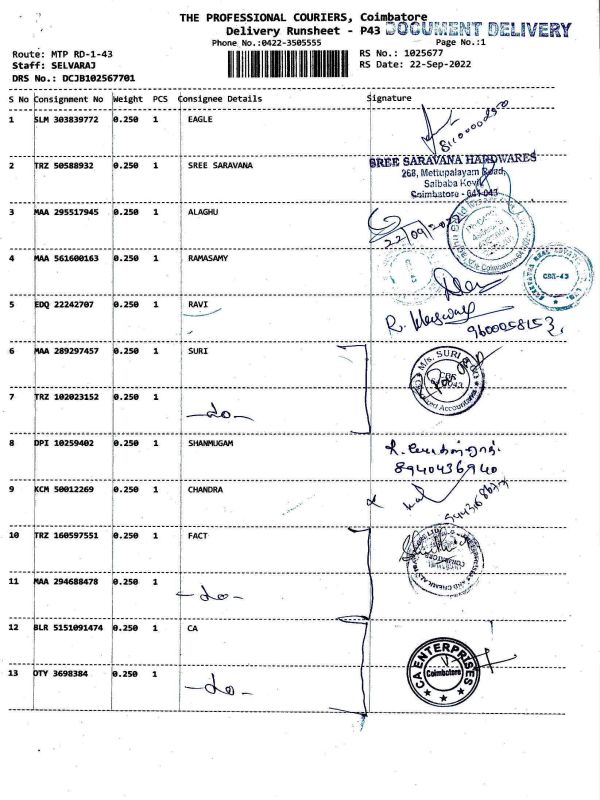 THE PROFESSIONAL COURIERS, Coimbatore
Delivery Runsheet - P43 DOCUMENT DELIVERY
Phone No.:0422-3505555 Page No.:1
Route: MTP RD-1-43 RS No.: 1025677
Staff: SELVARAJ RS Date: 22-Sep-2022
DRS No.: DCJB102567701
S No Consignment No Weight PCS Consignee Details Signature
1 SLM 303839772 0.250 1 EAGLE
2 TRZ 50588932 0.250 1 SREE SARAVANA
SREE SARAVANA HARDWARES
268, Mettupalayam Road,
Saibaba Kovil
Coimbatore - 641 043
3 MAA 295517945 0.250 1 ALAGHU
22/09/2022
4 MAA 561600163 0.250 1 RAMASAMY
CBE-43
5 EDQ 22242707 0.250 1 RAVI
9600058153
6 MAA 289297457 0.250 1 SURI
M/s. SURI & Co
Chartered Accountants
7 TRZ 102023152 0.250 1
-do-
8 DPI 10259402 0.250 1 SHANMUGAM
8940436940
9 KCM 50012269 0.250 1 CHANDRA
10 TRZ 160597551 0.250 1 FACT
11 MAA 294688478 0.250 1
-do-
12 BLR 5151091474 0.250 1 CA
CA ENTERPRISES
Coimbatore
13 OTY 3698384 0.250 1
-do-